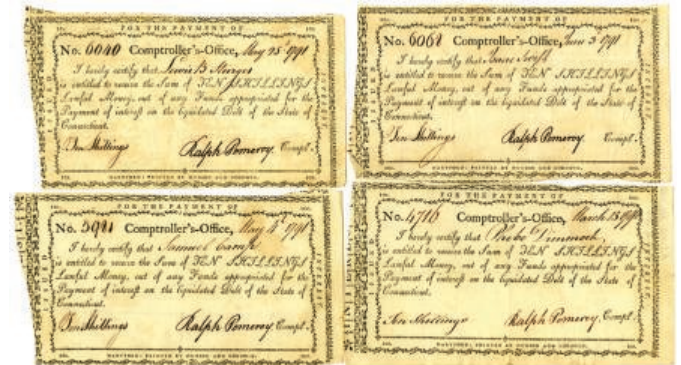 FOR THE PAYMENT OF
No. 6040 Comptroller's-Office, May 25 1791
I hereby certify that Lewis B Sturges
is entitled to receive the Sum of TEN SHILLINGS
Lawful Money, out of any Funds appropriated for the
Payment of interest on the liquidated Debt of the State of
Connecticut.
Ten Shillings Ralph Pomeroy Compt.
HARTFORD: PRINTED BY HUDSON AND GOODWIN.
FOR THE PAYMENT OF
No. 6061 Comptroller's-Office, June 3 1791
I hereby certify that Swift
is entitled to receive the Sum of TEN SHILLINGS
Lawful Money, out of any Funds appropriated for the
Payment of interest on the liquidated Debt of the State of
Connecticut.
Ten Shillings Ralph Pomeroy Compt.
HARTFORD: PRINTED BY HUDSON AND GOODWIN.
FOR THE PAYMENT OF
No. Comptroller's-Office, May 4 1791
I hereby certify that Samuel Camp
is entitled to receive the Sum of TEN SHILLINGS
Lawful Money, out of any Funds appropriated for the
Payment of interest on the liquidated Debt of the State of
Connecticut.
Ten Shillings Ralph Pomeroy Compt.
HARTFORD: PRINTED BY HUDSON AND GOODWIN.
FOR THE PAYMENT OF
No. 4716 Comptroller's-Office, March 15
I hereby certify that Phebe Dimmock
is entitled to receive the Sum of TEN SHILLINGS
Lawful Money, out of any Funds appropriated for the
Payment of interest on the liquidated Debt of the State of
Connecticut.
Ten Shillings Ralph Pomeroy Compt.
HARTFORD: PRINTED BY HUDSON AND GOODWIN.